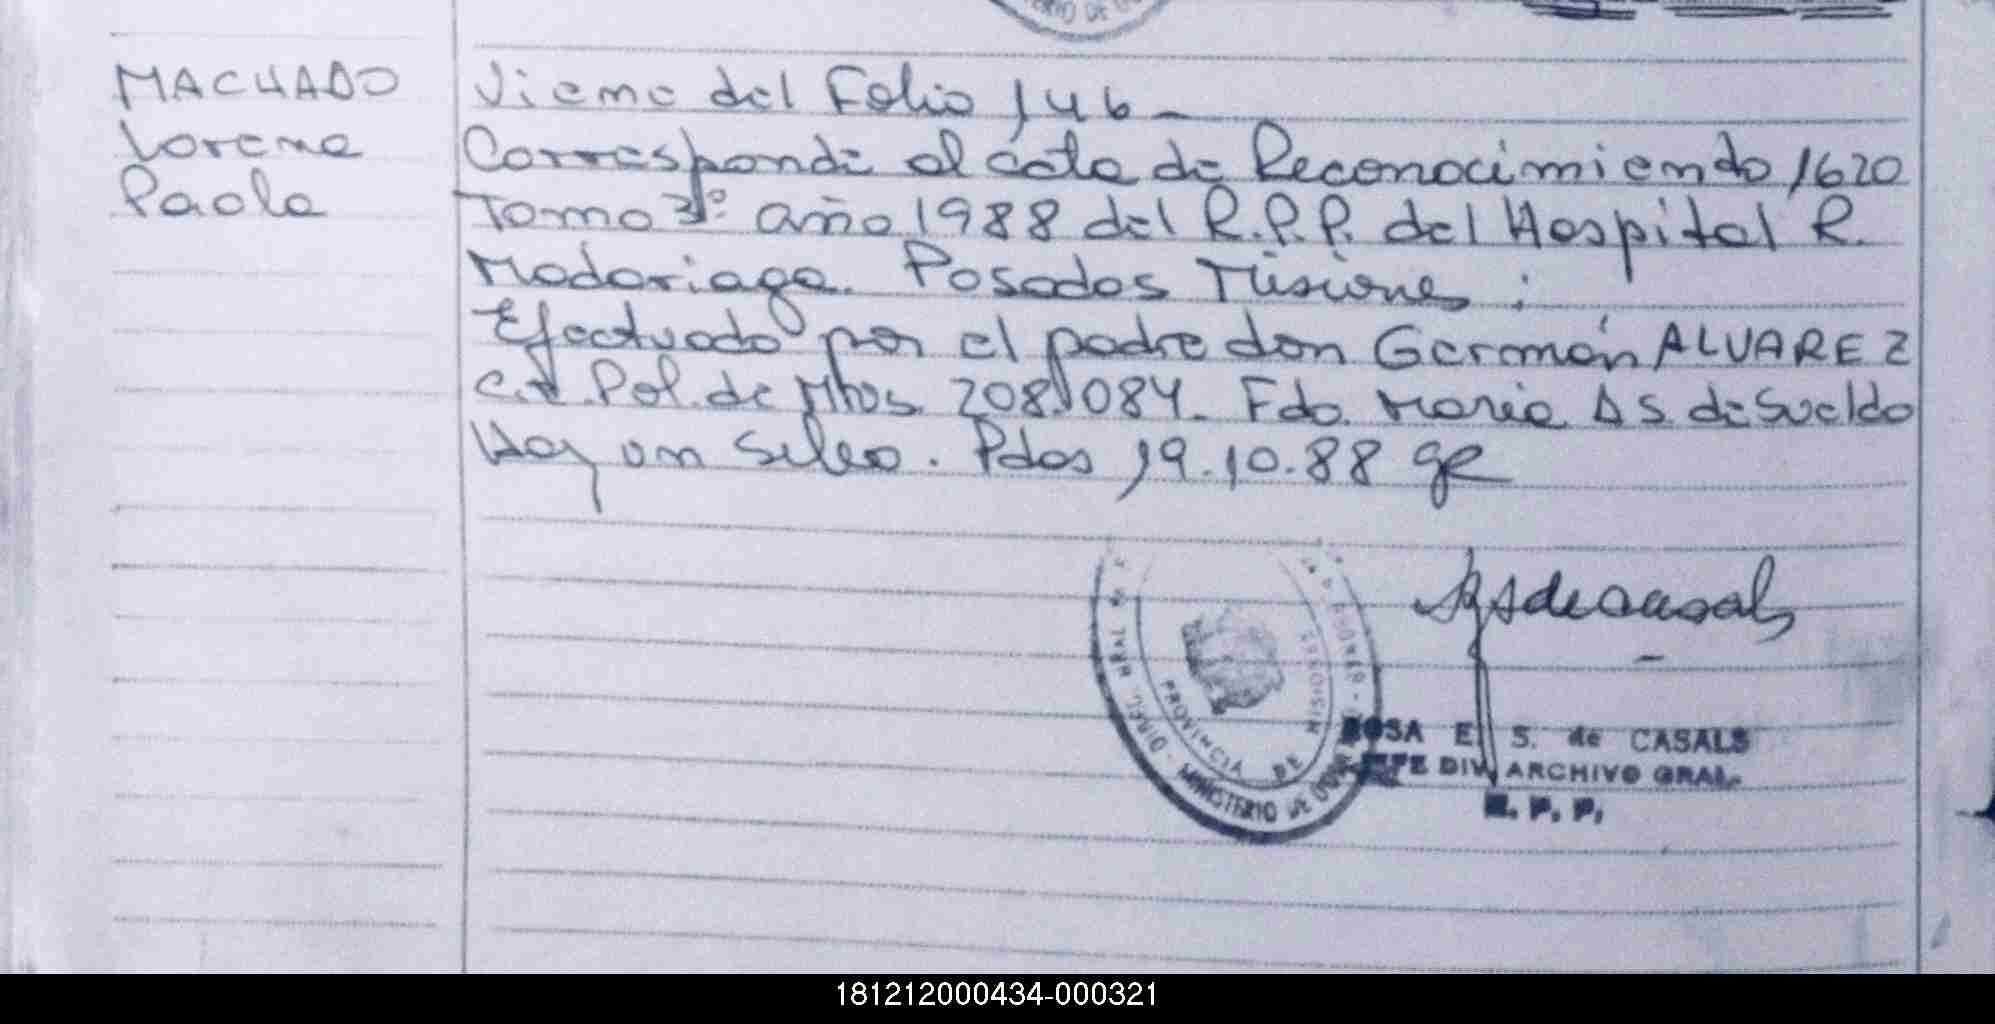 MINISTERIO DE
MACHADO
Lorena
Paola
Viene del Folio 146 -
Corresponde al acta de Reconocimiendo 1620
Tomo 3º año 1988 del R.P.P. del Hospital R.
Madariaga. Posadas Misiones ;
Efectuado por el padre don Germán ALVAREZ
C.I. Pol. de Mnos 208.084. Fdo. Maria A S. de Sueldo
Hay un Sello. Pdas 19.10.88 ge
PROVINCIA DE MISIONES
MINISTERIO DE
ROSA E. S. de CASALS
JEFE DIV. ARCHIVO GRAL.
R. P. P.
181212000434-000321